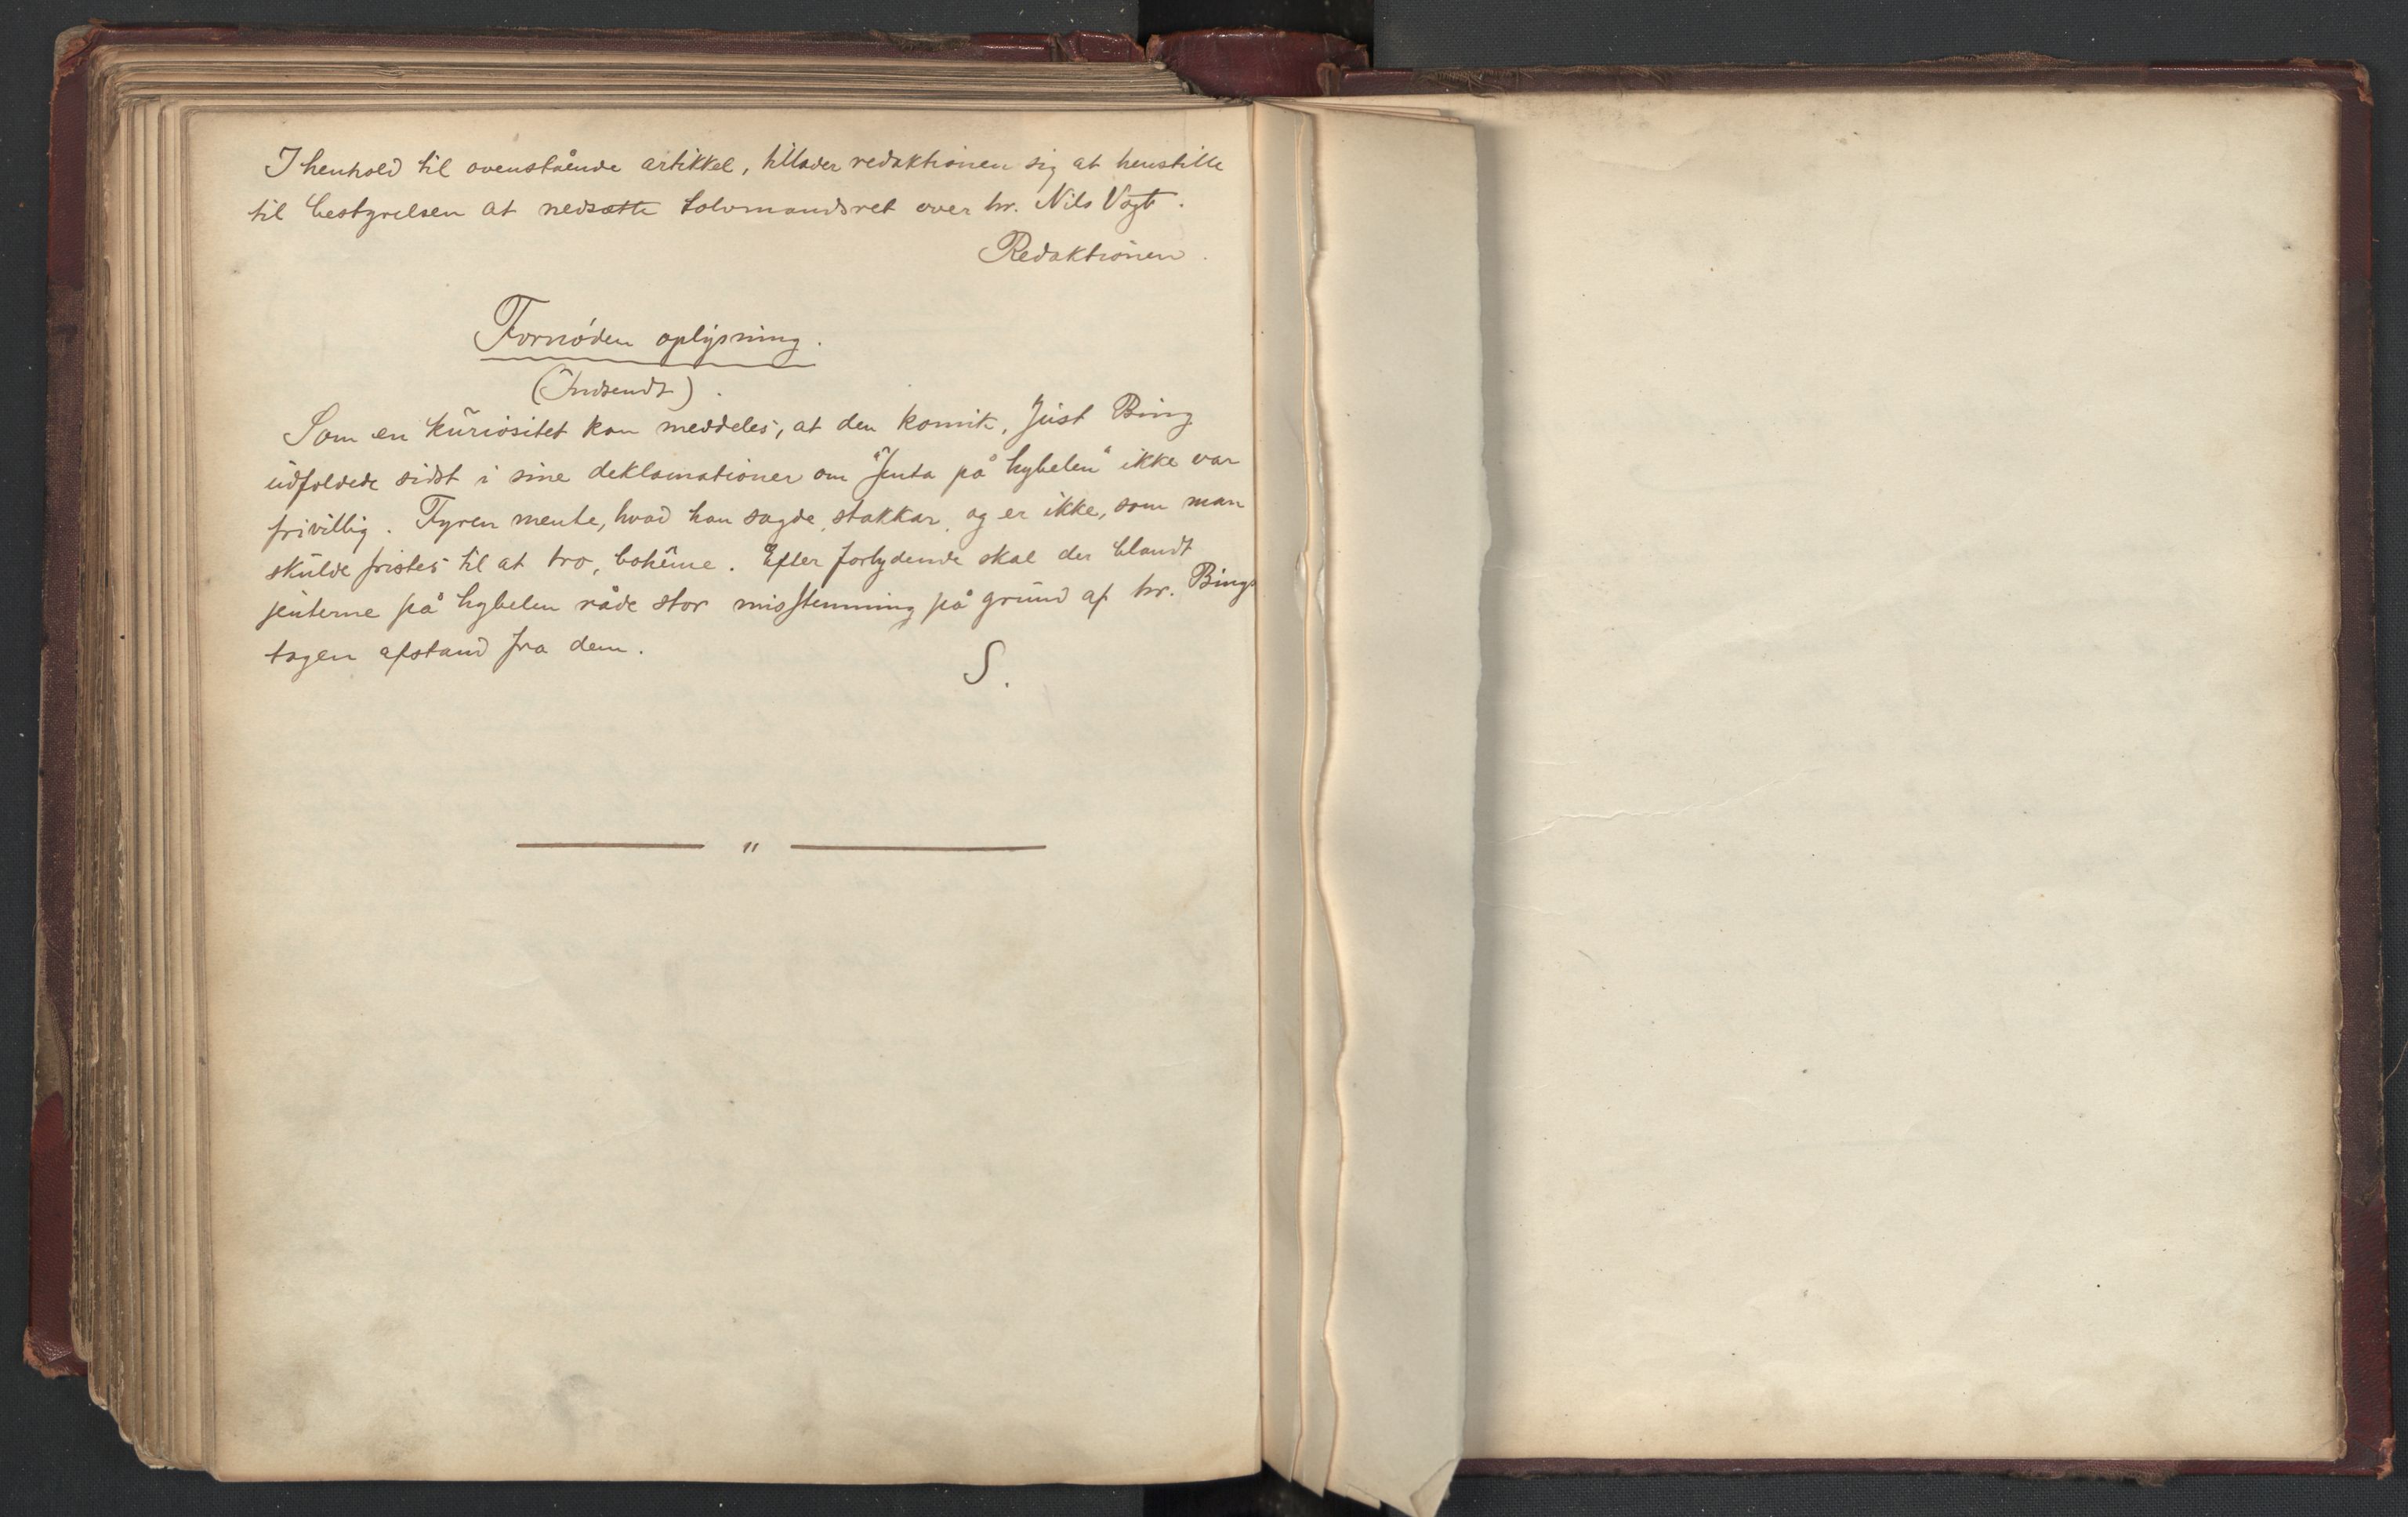 I henhold til ovenstående artikkel, tillader redaktionen sig at henstille
til bestyrelsen at nedsætte tolvmandsret over hr. Nils Vogt.
Redaktionen.
Fornøden oplysning.
(Indsendt).
Som en kuriositet kan meddeles, at den komik, Just Bing
udfoldede sidst i sine deklamationer om "Jenta på hybelen" ikke var
frivillig. Fyren mente, hvad han sagde, stakkar, og er ikke, som man
skulde fristes til at tro, bohême. Efter forlydende skal der blandt
jenterne på hybelen råde stor misstemning på grund af hr. Bings
tagen afstand fra dem.
S.
"